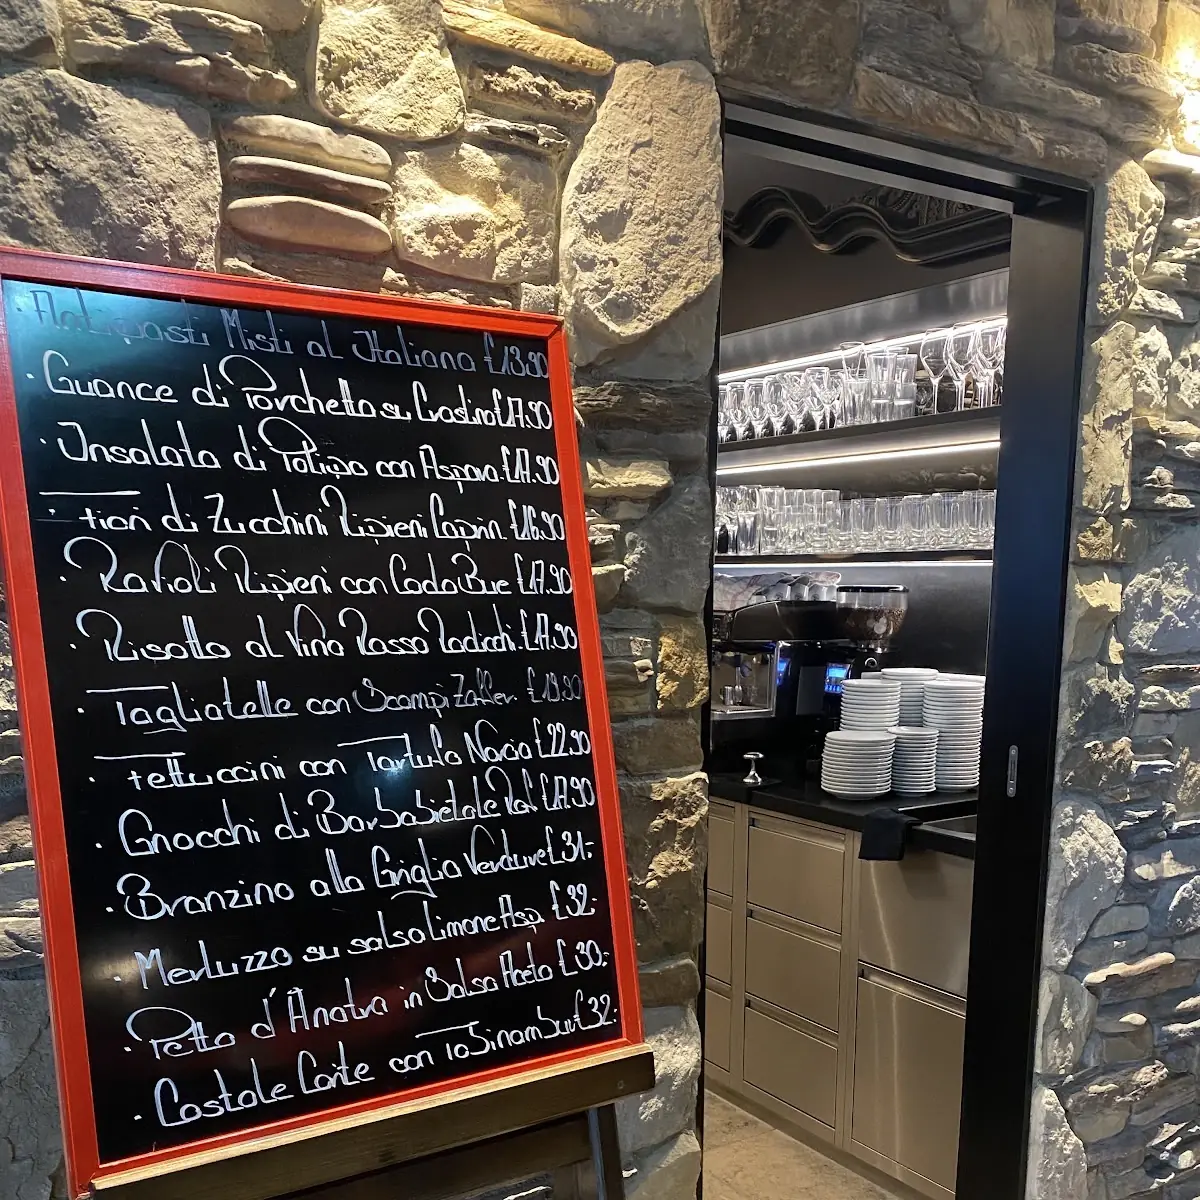 · Antipasti Misti al Italiana £13.90
· Guance di Porchetta su Crostino £17.90
· Insalata di Polipo con Aspara. £17.90
· Fiori di Zucchini Ripieni Caprin. £16.90
· Ravioli Ripieni con Coda Bue £17.90
· Risotto al Vino Rosso Radicchi. £17.90
· Tagliatelle con Scampi Zaffer. £19.90
· Fettuccini con Tartufo Norcia £22.90
· Gnocchi di Barbabietole £17.90
· Branzino alla Griglia Verdure £31.-
· Merluzzo su salsa Limone Asp. £32.-
· Petto d'Anatra in Salsa Aceto £30.-
· Costole Corte con Tobinambur £32.-